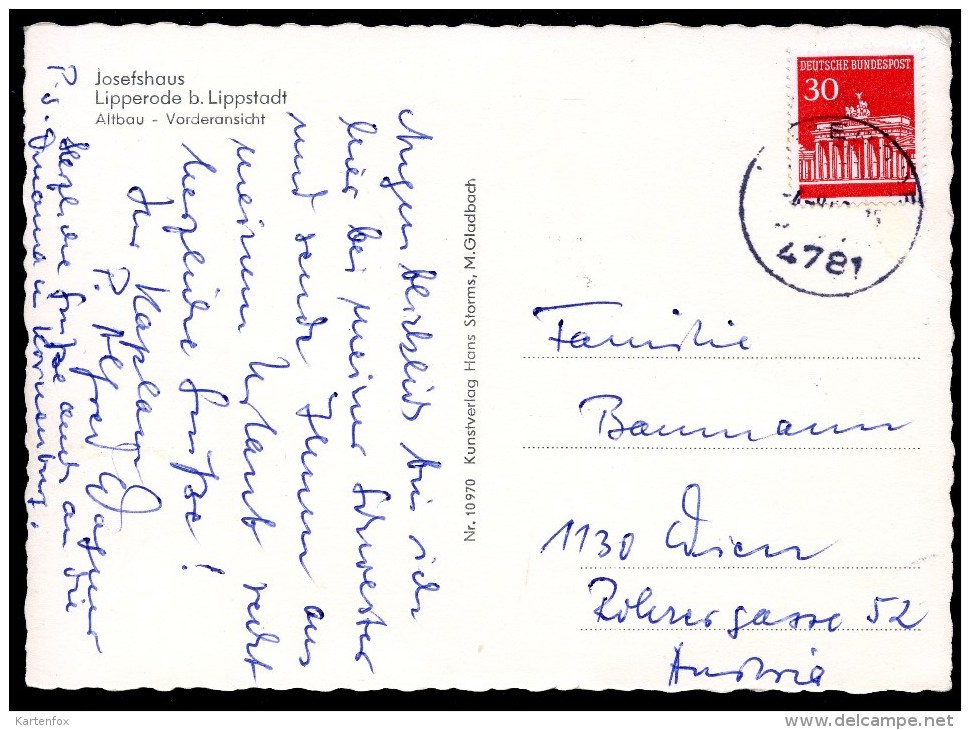 Josefshaus
Lipperode b. Lippstadt
Altbau - Vorderansicht
Augenblicklich bin ich
hier bei meiner Schwester
und sende Ihnen aus
meinem Urlaub recht
herzliche Grüße!
Ihr Kaplan
P. Alfred Wagner
P.S. Herzliche Grüße auch an die
Omama in Korneuburg.
Nr. 10970 Kunstverlag Hans Storms, M.Gladbach
DEUTSCHE BUNDESPOST
30
4781
Familie
Baumann
1130 Wien
Rohrergasse 52
Austria
Kartenfox
www.delcampe.net